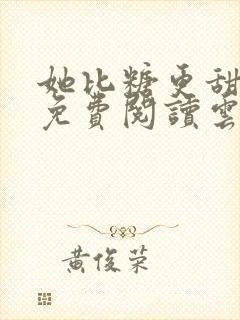 她比糖更甜
免費閱讀雲
黃俊榮